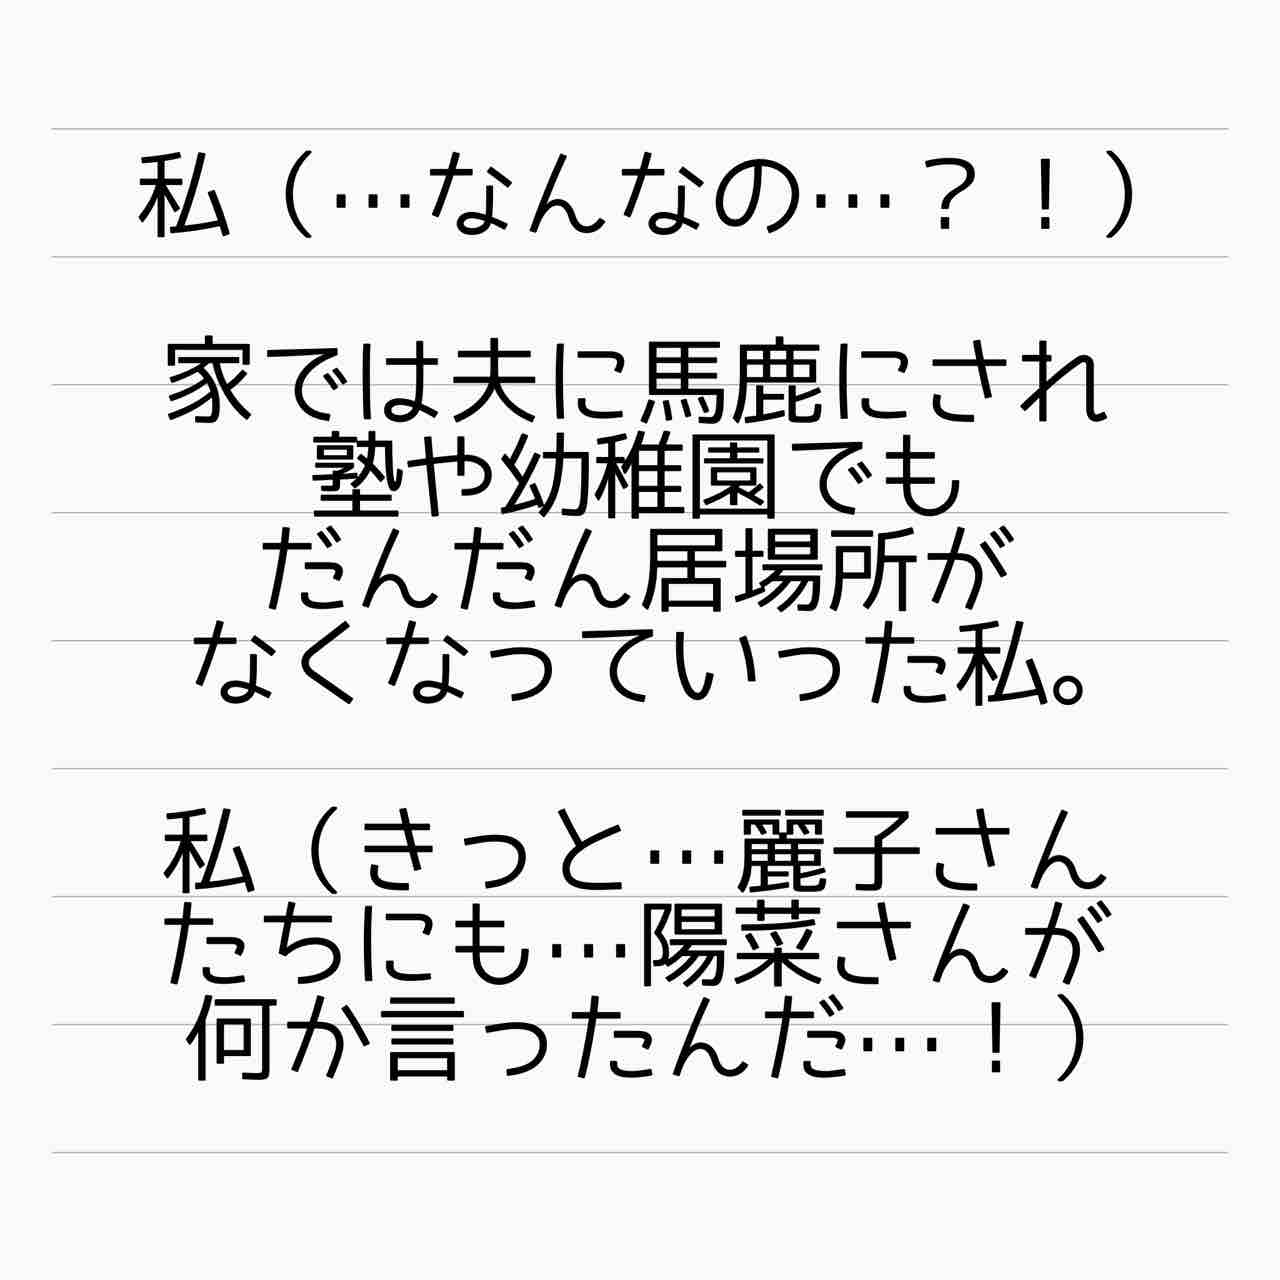 私（…なんなの…？！）
家では夫に馬鹿にされ
塾や幼稚園でも
だんだん居場所が
なくなっていった私。
私（きっと…麗子さん
たちにも…陽菜さんが
何か言ったんだ…！）